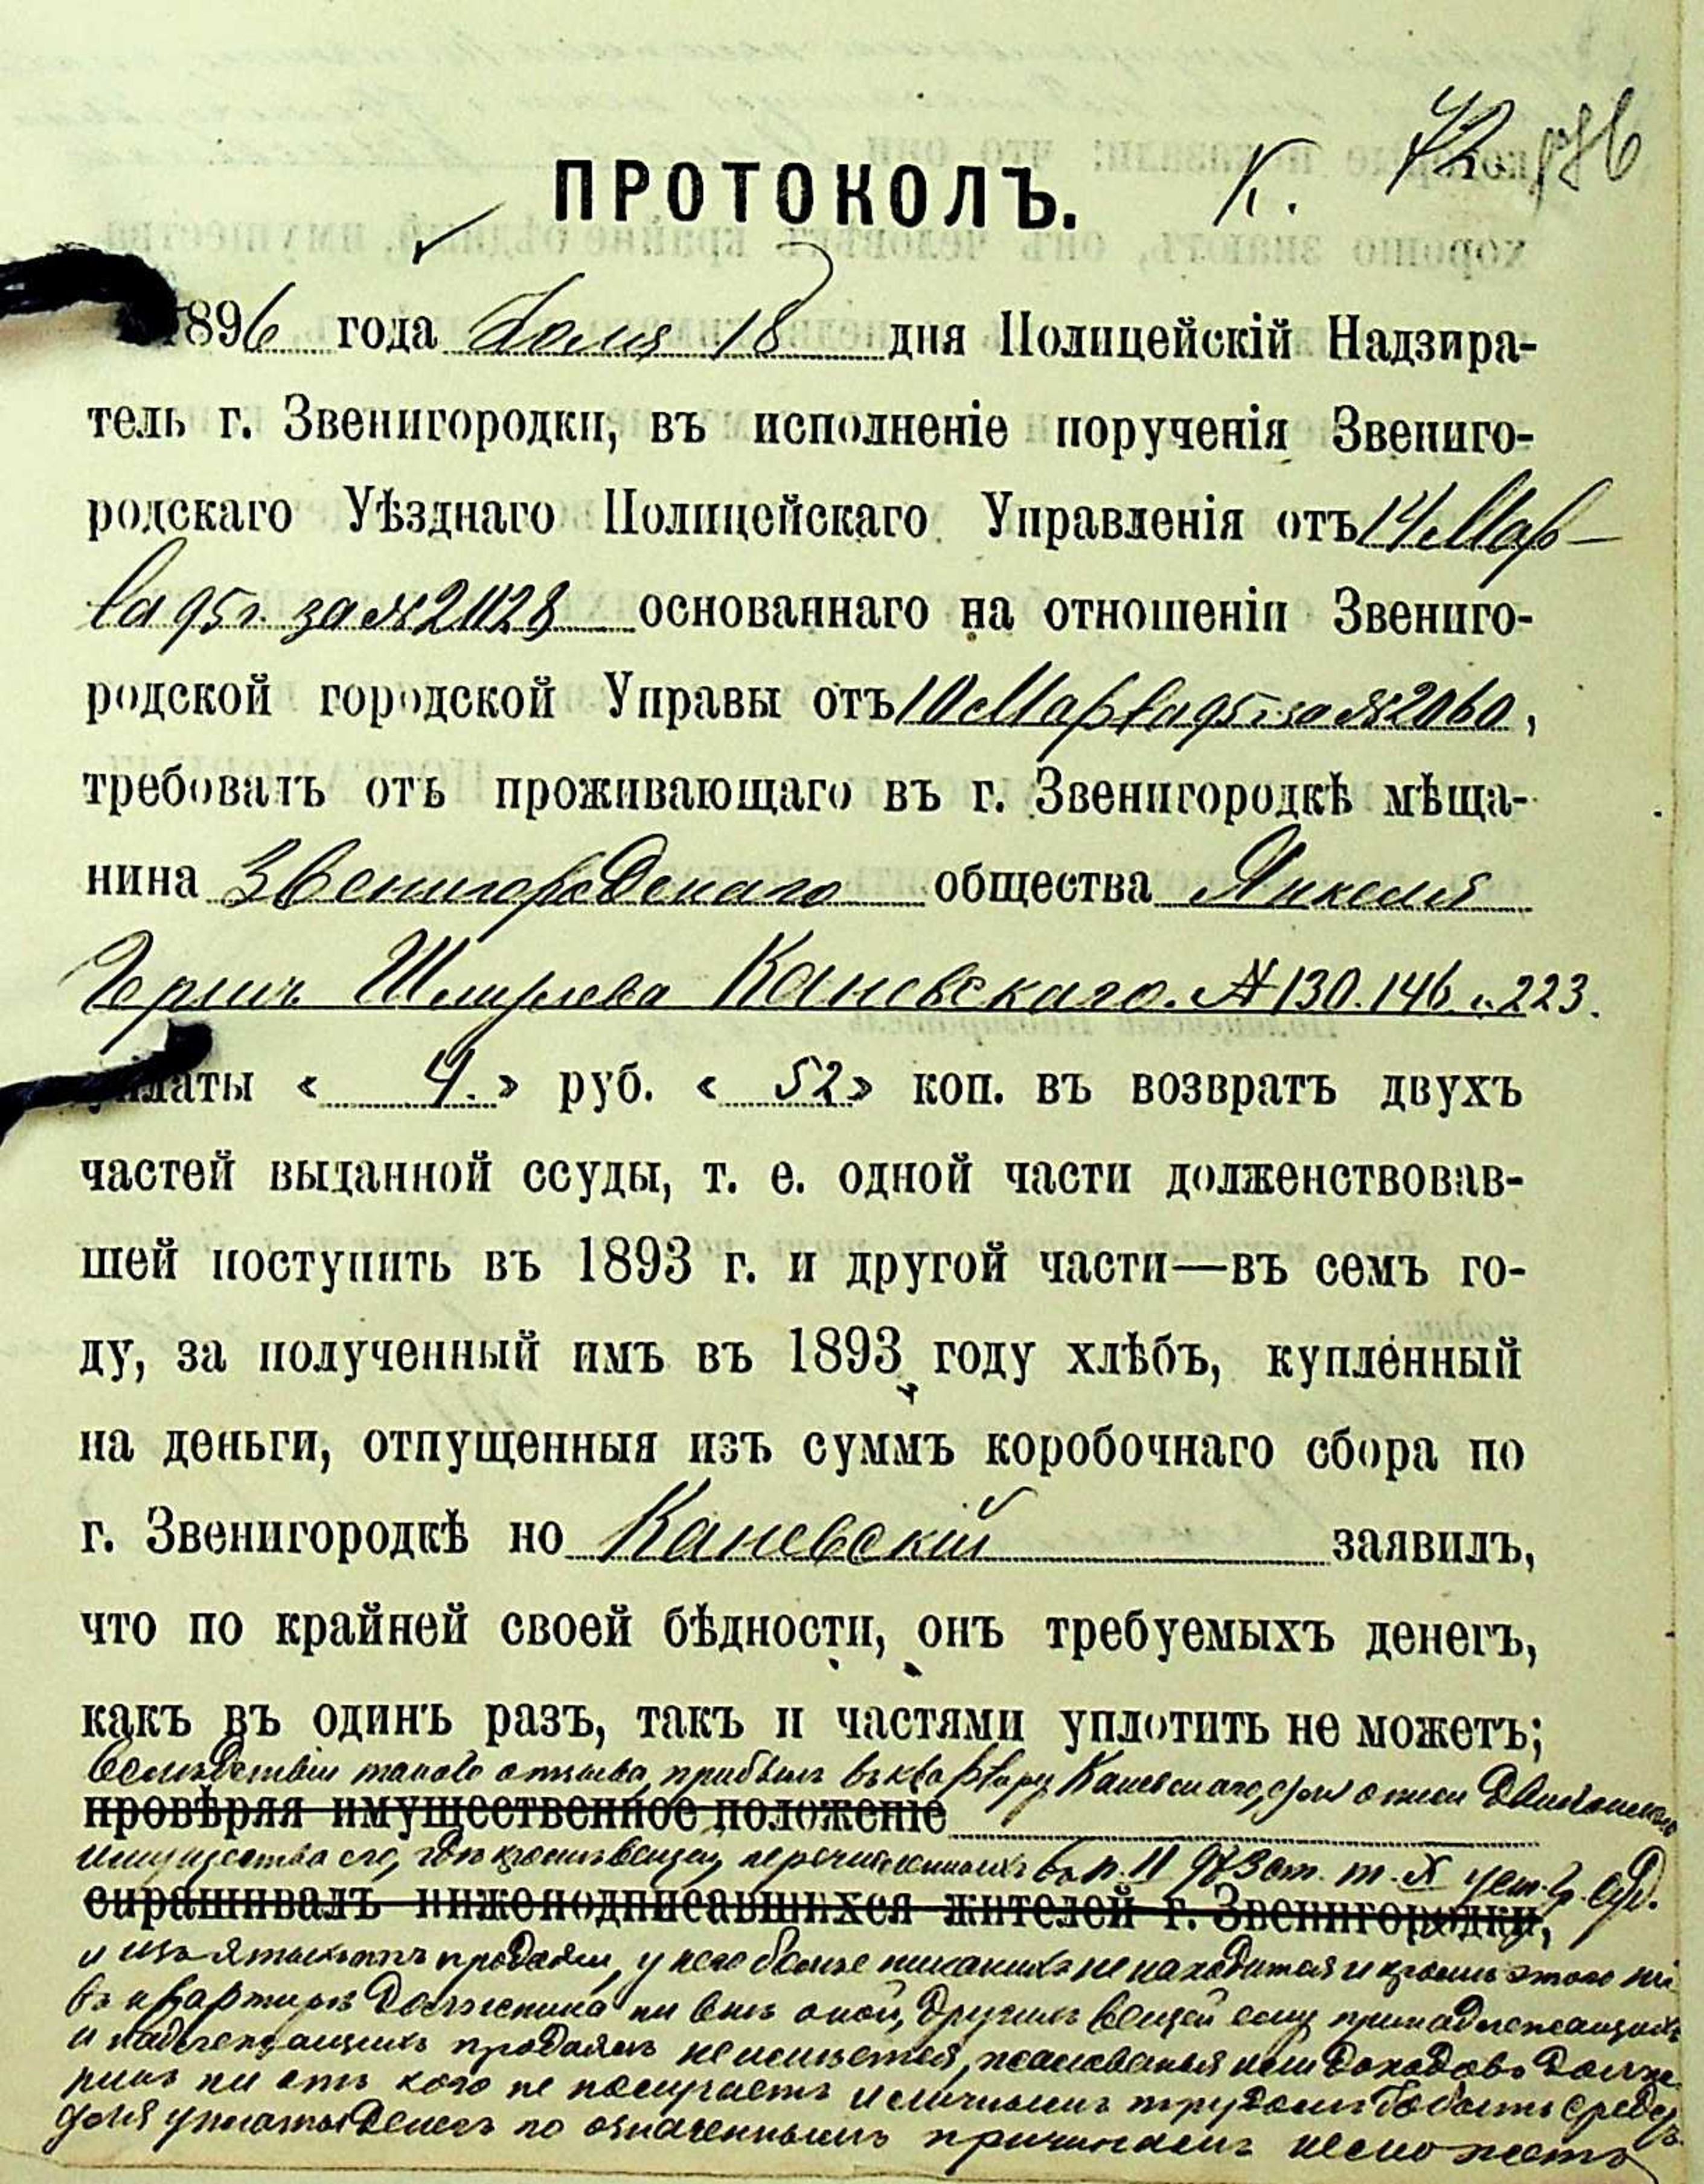 К. 42
ПРОТОКОЛЪ.
1896 года Іюля 18 дня Полицейскій Надзира-
тель г. Звенигородки, въ исполненіе порученія Звениго-
родскаго Уѣзднаго Полицейскаго Управленія отъ 14 Мар-
та 95 г. за № 2028 основаннаго на отношеніи Звениго-
родской городской Управы отъ 10 Марта 95 г. за № 2060,
требовалъ отъ проживающаго въ г. Звенигородкѣ мѣща-
нина Звенигородскаго общества Янкеля
Герша Шмулева Каневскаго. № 130. 146 и 223.
уплаты « 4. » руб. « 52 » коп. въ возвратъ двухъ
частей выданной ссуды, т. е. одной части долженствовав-
шей поступить въ 1893 г. и другой части—въ семъ го-
ду, за полученный имъ въ 1893 году хлѣбъ, купленный
на деньги, отпущенныя изъ суммъ коробочнаго сбора по
г. Звенигородкѣ но Каневскій заявилъ,
что по крайней своей бѣдности, онъ требуемыхъ денегъ,
какъ въ одинъ разъ, такъ и частями уплотить не можетъ;
Вслѣдствіи такого отзыва, прибылъ въ квартиру Каневскаго, для описи движимаго
провѣряя имущественное положеніе
имущества его, гдѣ кромѣ вещей, перечисленныхъ въ п. II 973 ст. т. X уст. гр. суд.
спрашивалъ нижеподписавшихся жителей г. Звенигородки,
и изъятыхъ отъ продажи, у него болѣе никакихъ не находится и кромѣ этого ни
въ квартирѣ должника ни внѣ оной, другихъ вещей ему принадлежащихъ
и подлежащихъ продажѣ не имѣется, жалованья или доходовъ долж-
никъ ни отъ кого не получаетъ и личнымъ трудомъ добыть средствъ
для уплаты денегъ по означеннымъ причинамъ не можетъ